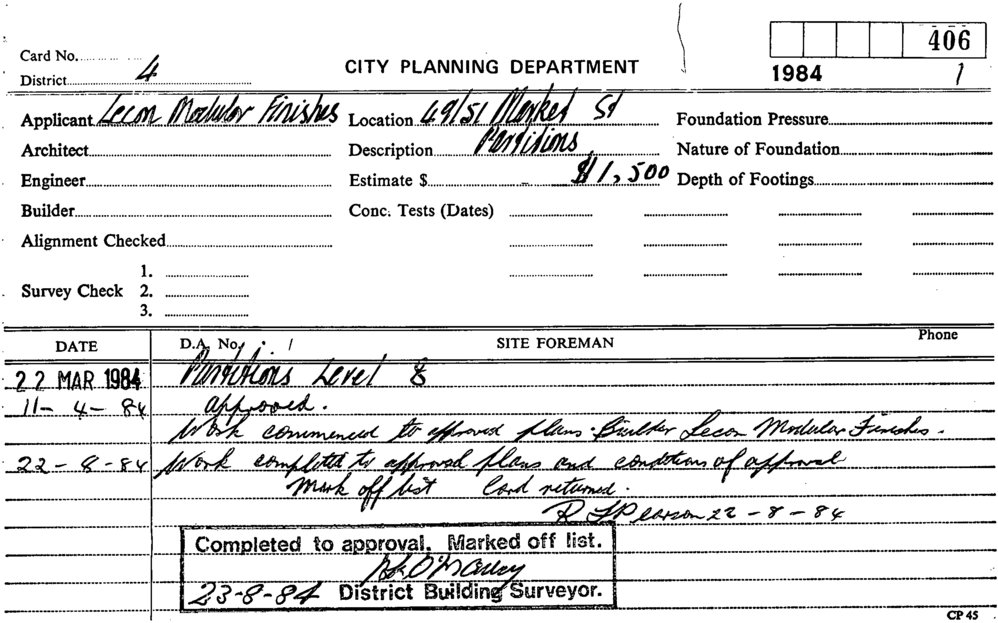 406
Card No.
District 4
CITY PLANNING DEPARTMENT
1984 1
Applicant Lecon Modular Finishes Location 49/51 Market St Foundation Pressure
Architect Description Partitions Nature of Foundation
Engineer Estimate $ $1,500 Depth of Footings
Builder Conc. Tests (Dates)
Alignment Checked
1.
Survey Check 2.
3.
DATE D.A. No. SITE FOREMAN Phone
22 MAR 1984 Partitions Level 8
11-4-84 approved.
Work commenced to approved plans. Builder Lecon Modular Finishes.
22-8-84 Work completed to approved plans and conditions of approval
Mark off list Card returned.
R Pearson 22-8-84
Completed to approval. Marked off list.
23-8-84 District Building Surveyor.
CP 45